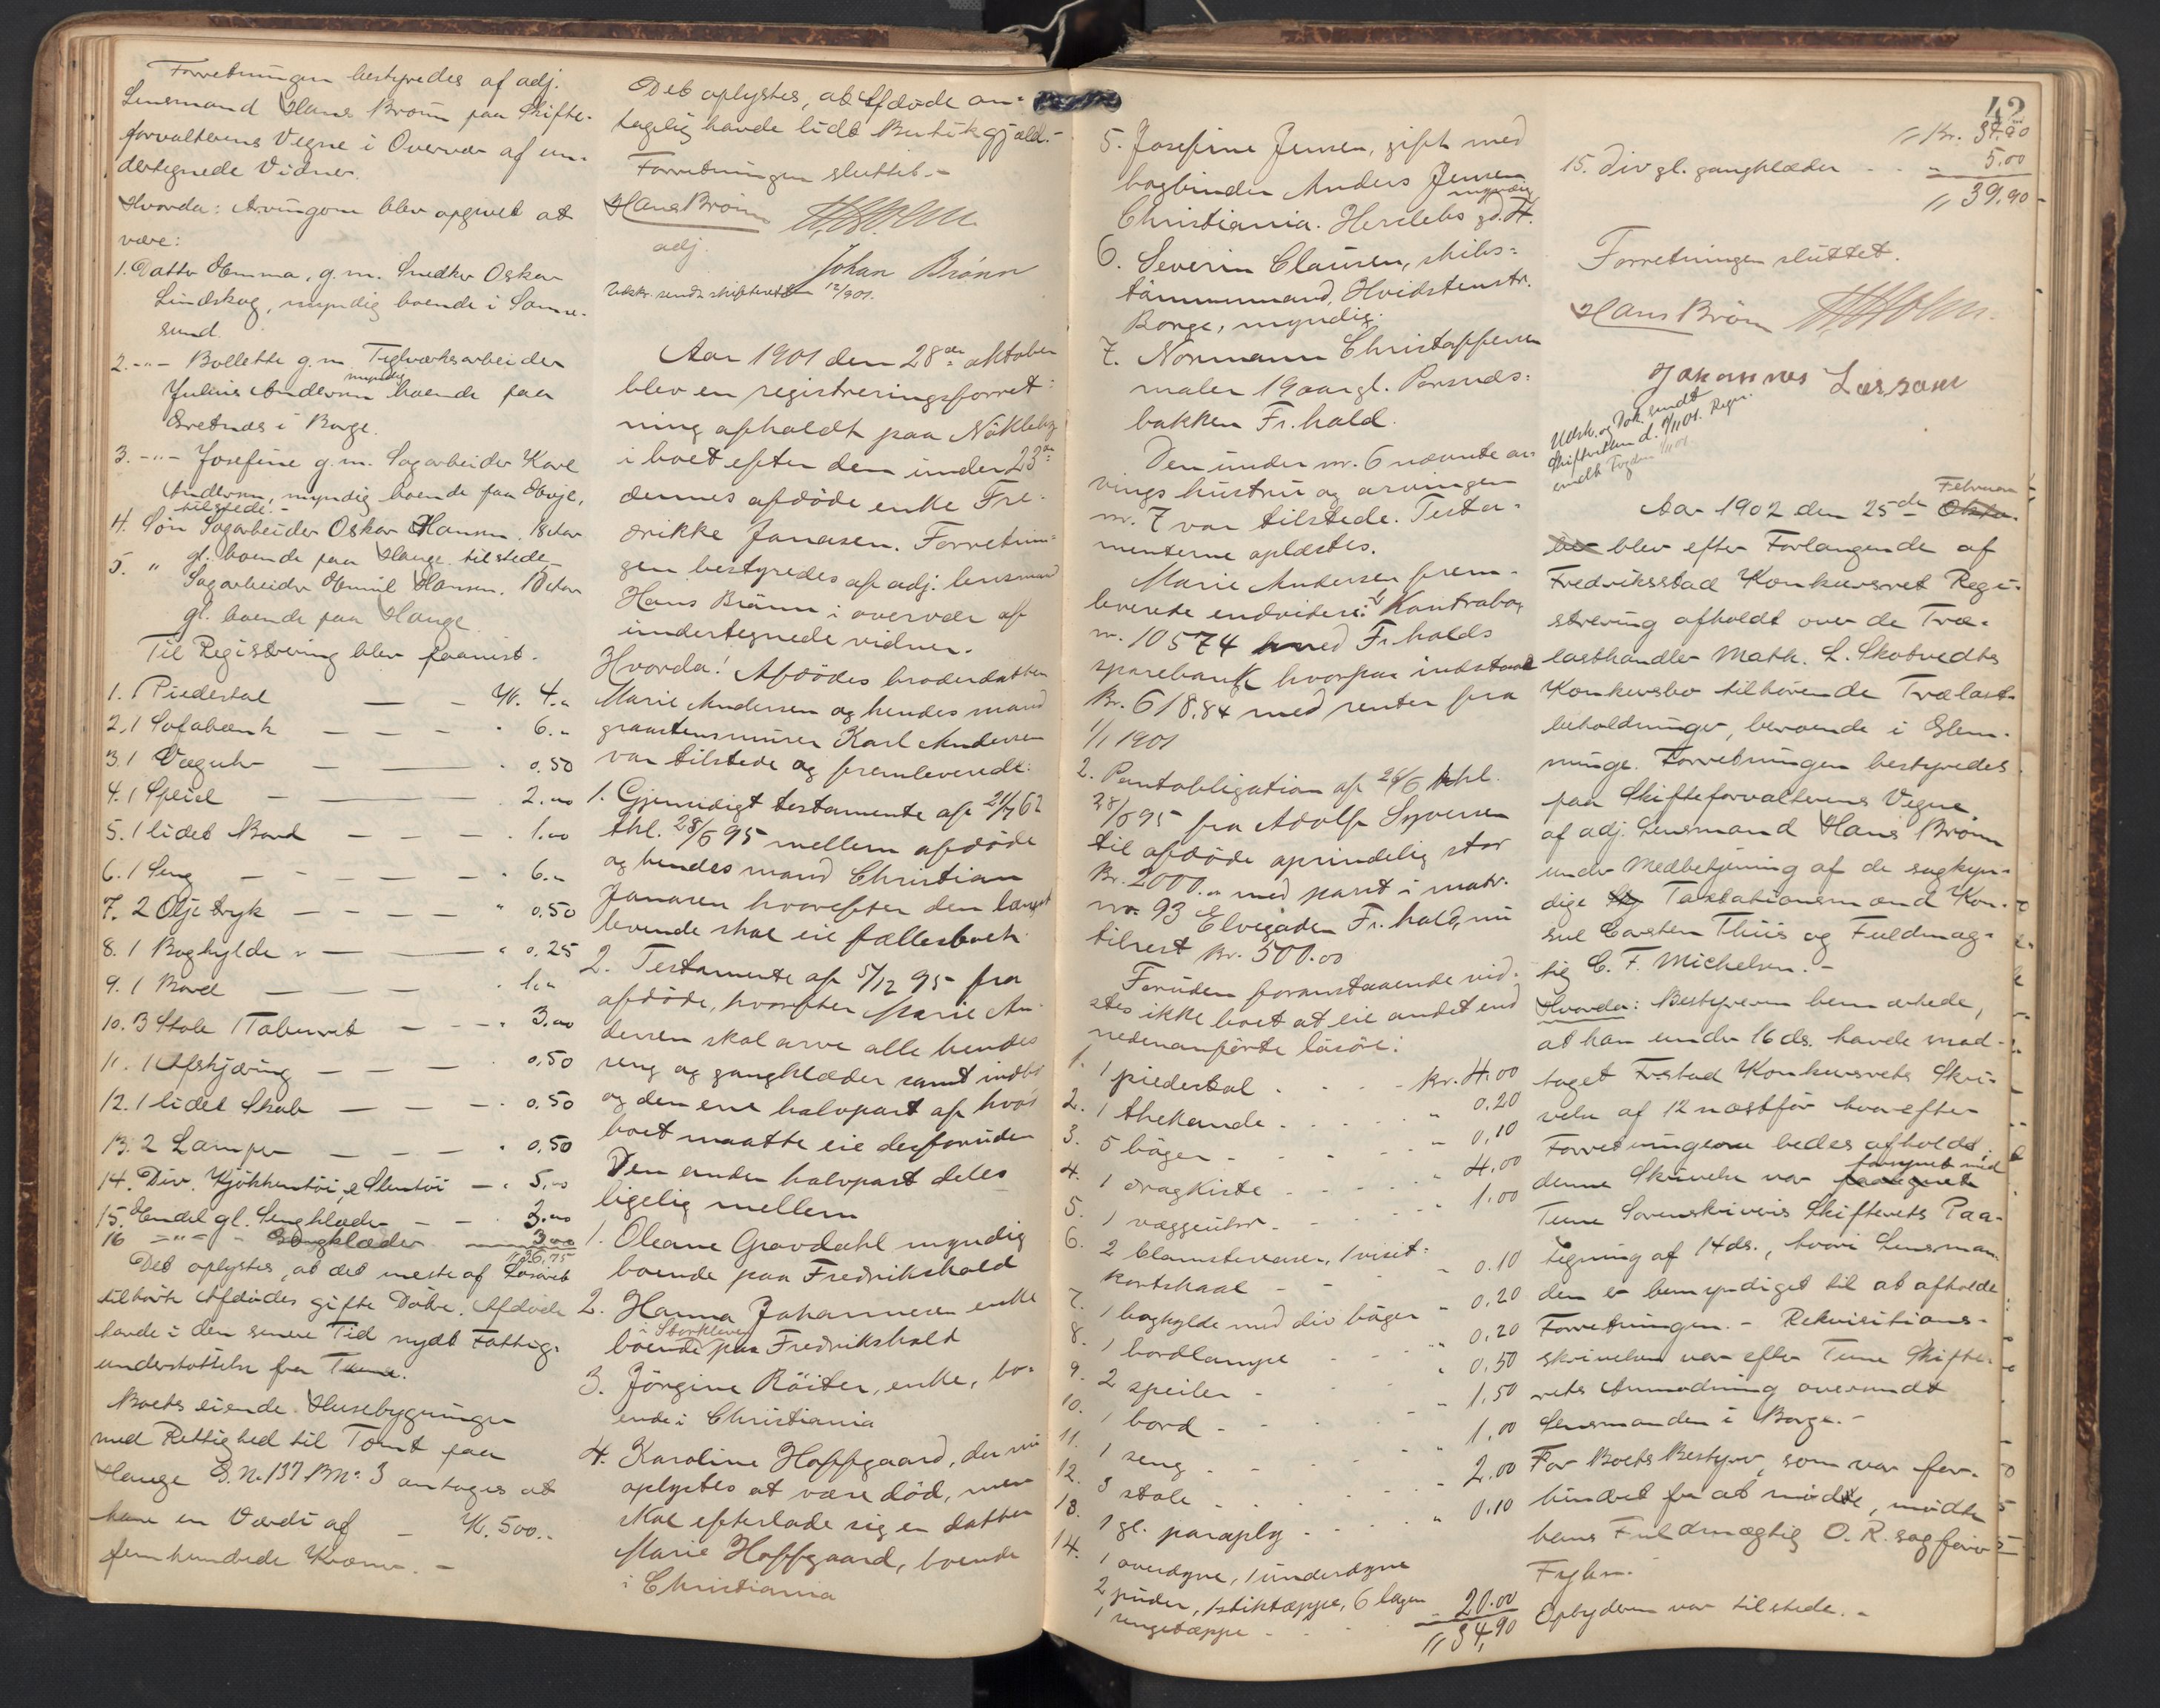 Forretningen bestyredes af adj.
Lensmand Hans Brønn paa Skifte-
forvalterens Vegne i Overvær af un-
dertegnede Vidner.
Hvorda: Arvingerne blev opgivet at
være:
1. Datter Emma, g.m. Snedker Oskar
Lindskog, myndig boende i Sanne-
sund.
2. -"- Bollette g.m. Teglværksarbeider
Julius Andersen myndig boende paa
Evetnæs i Borge.
3. -"- Josefine g.m. Sagarbeider Karl
Andersen, myndig boende paa Hauge,
tilstede.-
4. Søn Sagarbeider Oskar Hansen. 18 Aar
gl. boende paa Hauge tilstede
5. " Sagarbeider Emil Hansen. 16 Aar
gl. boende paa Hauge.
Til Registrering blev paavist.
1. 1 Piedestal — - Kr. 4.-
2. 1 Sofabænk — — - " 6.-
3. 1 Væguhr — — " 0.50
4. 1 Speil — — 2.00
5. 1 lidet Bord — — - " 1.00
6. 1 Seng — — — " 6.-
7. 2 Oljetryk — — — " 0.50
8. 1 Boghylde — — " 0.25
9. 1 Bord — — — " 1.-
10. 3 Stole 1 Taburet — - " 3.00
11. 1 Opskjæring — — - 0.50
12. 1 lidet Skab — — — " 0.50
13. 2 Lamper — — - " 0.50
14. Div. Kjøkkentøi, Stentøi — " 5.00
15. Endel gl. Sengklæder — - 3.00
16 -"- - Gangklæder 3.00
" 36.75
Det oplystes, at det meste af Løsøret
tilhørte Afdødes gifte Døtre. Afdøde
havde i den senere Tid nydt Fattig-
understøttelse fra Tune.
Boets eiende Husebygninger
med Rettighed til Tomt paa
Hauge G.N. 137 BN. 3 antoges at
have en Værdi af — Kr. 500.-
femhundrede Kroner. —
Det oplystes, at Afdøde an-
tagelig havde lidt Butikgjæld.-
Forretningen sluttet.-
Hans Brønn H. Holm
adj.
Johan Brønn
Udskr. sendt skifteretten 12/901.
Aar 1901 den 28de oktober
blev en registreringsforret-
ning afholdt paa Nøkleby
i boet efter den under 23de
dennes afdøde enke Fre-
drikke Jonasen. Forretnin-
gen bestyredes af adj. lensmand
Hans Brønn i overvær af
undertegnede vidner.
Hvorda! Afdødes broderdatter
Marie Andersen og hendes mand
graastensmurer Karl Andersen
var tilstede og fremleverede:
1. Gjensidigt testamente af 21/7 62
thl. 28/6 95 mellem afdøde
og hendes mand Christian
Jonasen hvorefter den længst
levende skal eie fællesboet.
2. Testamente af 5/12 95 fra
afdøde, hvorefter Marie An-
dersen skal arve alle hendes
seng og gangklæder samt indbo
og den ene halvpart af hvad
boet maatte eie desforuden
Den anden halvpart deles
ligelig mellem
1. Oleane Gravdahl myndig
boende paa Fredrikshald
2. Hanna Johannesen enke
i Storkleven
boende paa Fredrikshald
3. Jörgine Röiter, enke, bo-
ende i Christiania
4. Karoline Hoffgaard, der nu
oplystes at være död, men
skal efterlade sig en datter
Marie Hoffgaard, boende
i Christiania
42
5. Josefine Jensen, gift med
bogbinder Anders Jensen
myndig
Christiania. Herslebs gd. H.
6. Severin Clausen, skibs-
tömmermand, Hvidstenstr.
Borge, myndig.
7. Normann Christoffersen
maler 19 aar gl. Porsnæs-
bakken Fr.hald.
Den under nr. 6 nævnte ar-
vings hustru og arvingen
nr. 7 var tilstede. Testa-
menterne oplæstes.
Marie Andersen frem-
leverede endvidere: 1) Kontrabog
nr. 10574 med Fr.halds
sparebank hvorpaa indstaar
Kr. 618,84 med renter fra
1/1 1901
2. Pantobligation af 26/6 thl.
28/6 95 fra Adolf Syversen
til afdøde oprindelig stor
Kr. 2000.00 med pant i matr.
nr. 93 Elvegaden Fr.hald, nu
tilrest Kr. 500.00
Foruden foranstaaende vid-
stes ikke boet at eie andet end
nedenanførte løsøre:
1. 1 piedestal . . . kr. 4.00
2. 1 thekande . . . . " 0.20
3. 5 bøger - - - - " 0,10
4. 1 dragkiste - - - " 4.00
5. 1 væggeuhr - - - " 1.00
6. 2 blomstervaser, 1 visit-
kortskaal - - - " 0.10
7. 1 boghylde med div bøger " 0,20
8. 1 bordlampe - - - " 0,20
9. 2 speiler - - - " 0,50
10. 1 bord - - - " 1,50
11. 1 seng - - - " 1,00
12. 3 stole - - - " 2.00
13. 1 gl. paraply - - - " 0.10
14. 1 overdyne, 1 underdyne
2 puder, 1 stiktæppe, 6 lagen
1 sengetæppe - - - " 20.00
" 34,90
" Kr. 34.90
15. Div gl. gangklæder - - " 5.00
" 39.90
Forretningen sluttet.
Hans Brønn H. Holm.
Johannes Larssen
Udsk. og Dok. sendt
Skifteretten d. 1/11 01. Regn.
sendt Fogden 1/11 01.
Februar
Aar 1902 den 25de Okto-
ber blev efter Forlangende af
Fredriksstad Konkursret Regi-
strering afholdt over de Træ-
lasthandler Math. L. Skotvedts
Konkursbo tilhørende Trælast-
beholdninger, beroende i Glem-
minge. Forretningen bestyredes
paa Skifteforvalterens Vegne
af adj. Lensmand Hans Brønn
under Medbetjening af de sagkyn-
dige Taxtationsmænd Kon-
sul Carsten Thiis og Fuldmæg-
tig C. F. Michelsen. -
Hvorda: Bestyreren bemærkede,
at han under 16 ds. havde mod-
taget Fr.stad Konkursrets Skri-
velse af 12 næstfør hvorefter
Forretningerne bedes afholdt,
forsynet med
denne Skrivelse var paategnet
Tune Sorenskriveris Skifterets Paa-
tegning af 14 ds., hvori Lensman-
den er bemyndiget til at afholde
Forretningen. - Rekvisitions-
skrivelsen var efter Tune Skifte-
rets Anmodning oversendt
Lensmanden i Borge. -
For Boets Bestyrer, som var for-
hindret fra at møde, mødte
hans Fuldmægtig O. R. sagfører
Opbyderen var tilstede. -